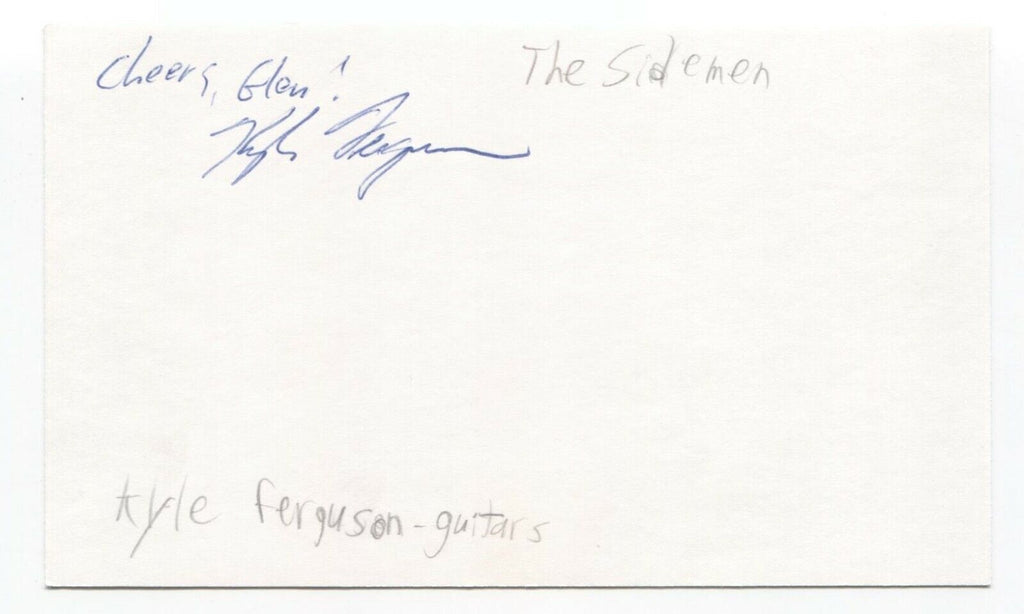 Cheers, Glen!
The Sidemen
Kyle Ferguson
Kyle Ferguson-guitars